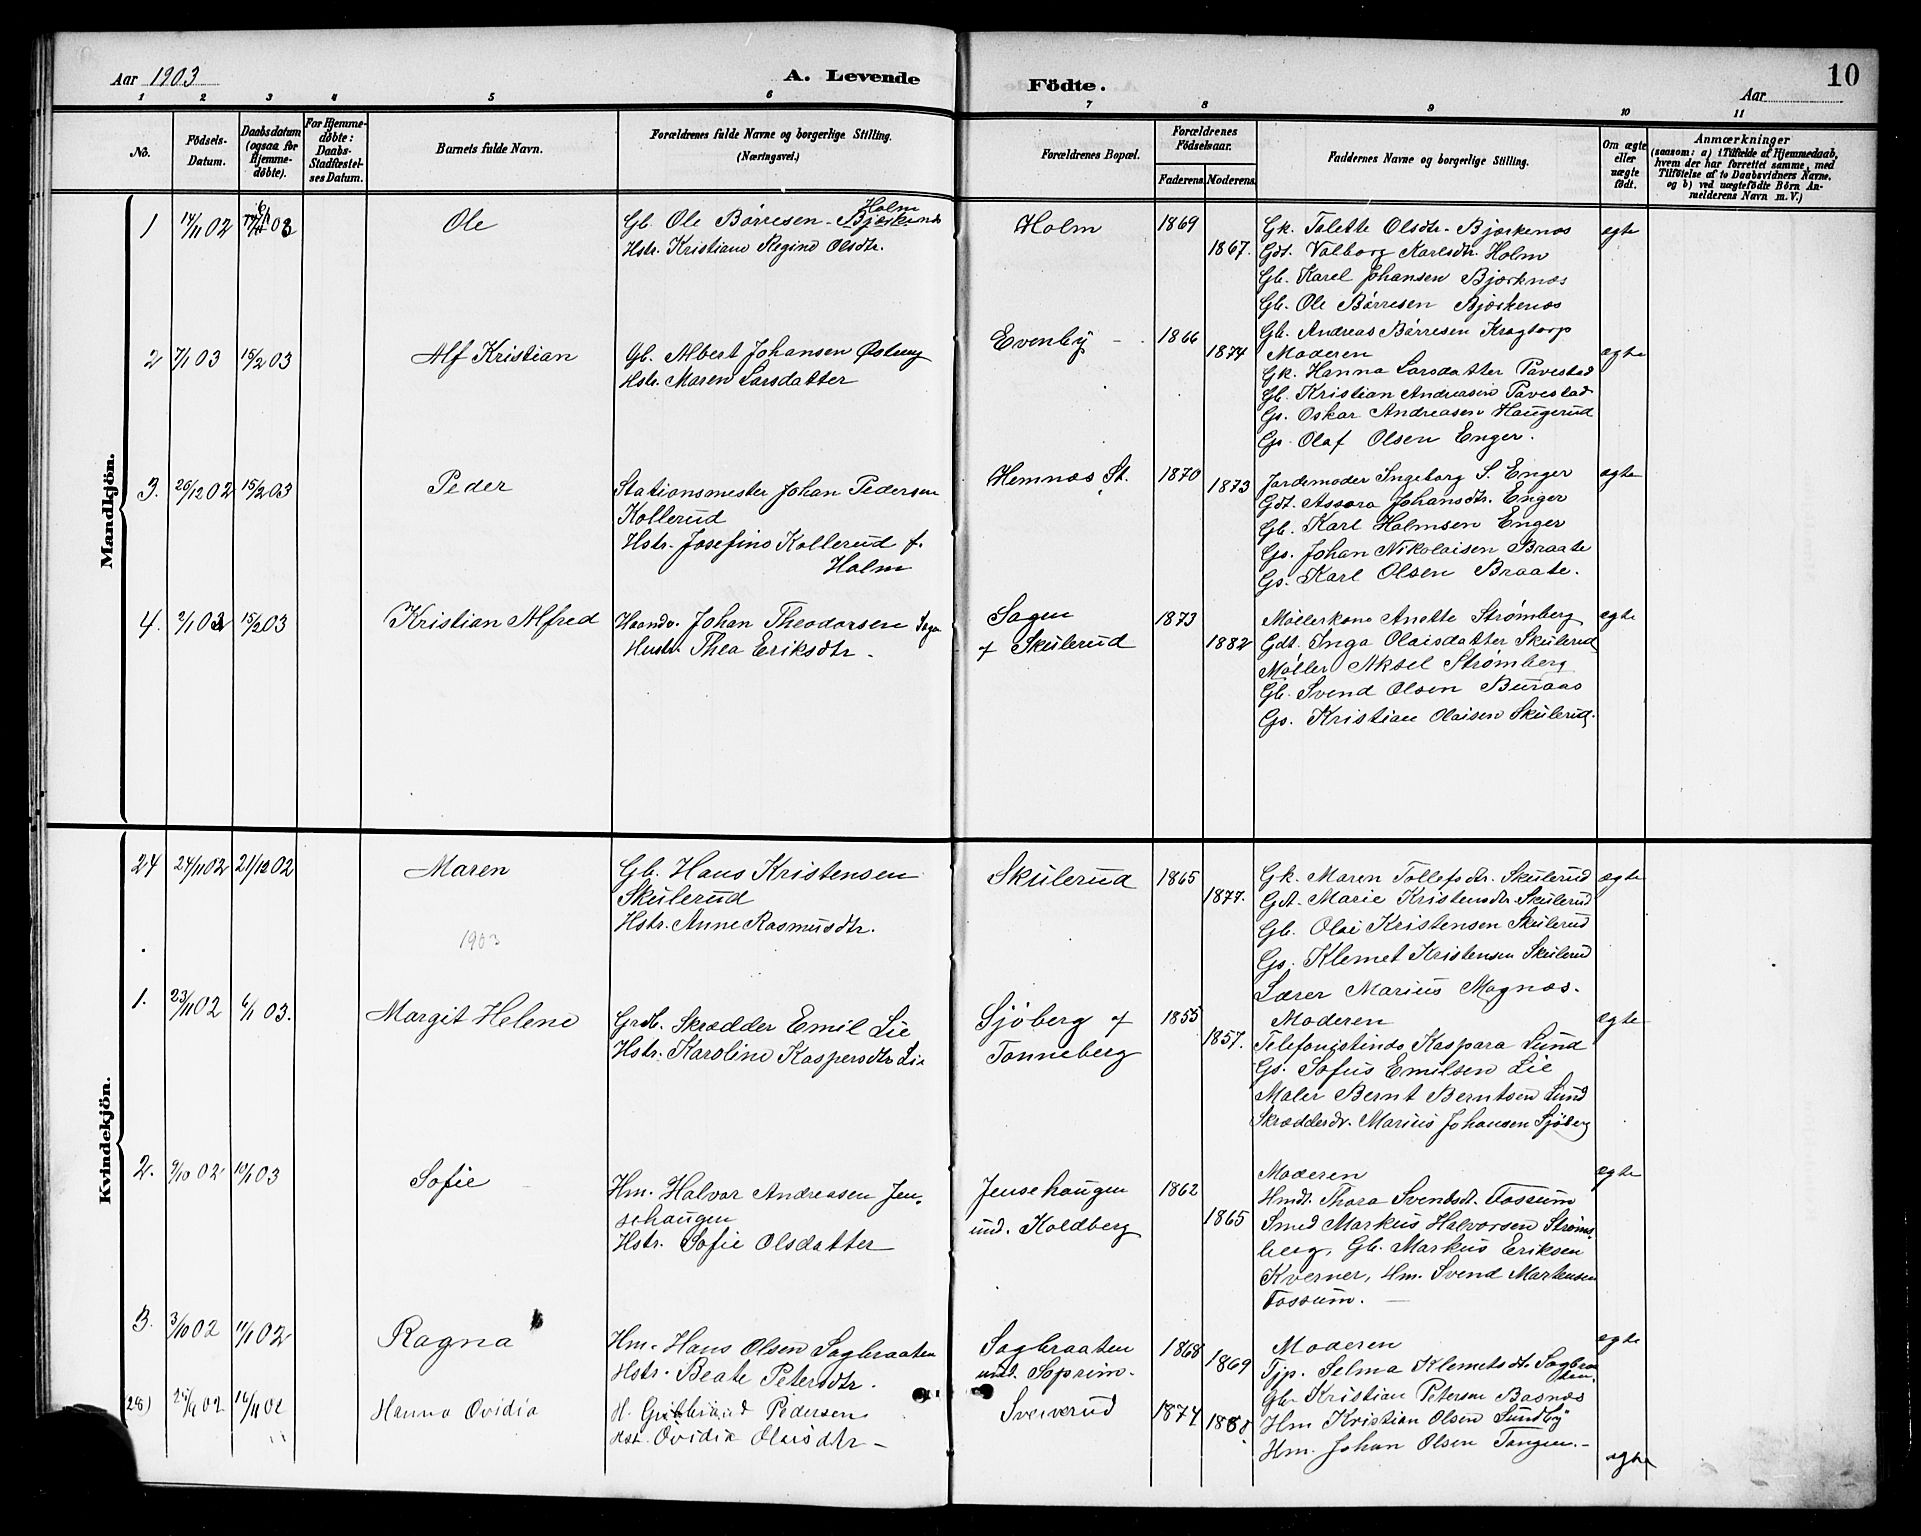 Aar 1903
A. Levende
Födte.
Aar
10
1 2 3 4 5 6 7 8 9 10 11
No.
Födsels-
Datum.
Daabsdatum
(ogsaa for
Hjemme-
døbte).
For Hjemme-
døbte:
Daabs-
Stadfæstel-
ses Datum.
Barnets fulde Navn.
Forældrenes fulde Navne og borgerlige Stilling.
(Næringsvei.)
Forældrenes Bopæl.
Forældrenes
Födselsaar.
Faderens. Moderens.
Faddernes Navne og borgerlige Stilling.
Om ægte
eller
uægte
födt.
Anmærkninger
(saasom: a) i Tilfælde af Hjemmedaab,
hvem der har forrettet samme, med
Tilføielse af to Daabsvidners Navne,
og b) ved uægtefödte Börn An-
melderens Navn m. V.)
Mandkjön.
1 14/11 02 03 Ole
Holm
Gb. Ole Børresen Bjørkenes
Hstr. Kristiane Regine Olsdtr.
Holm 1869 1867.
Gk. Talette Olsdtr. Bjørkenes
Gdt. Valborg Karlsdtr. Holm
Gb. Karel Johansen Bjørknes
Gb. Ole Børresen Bjørkenes
Gb. Andreas Børresen Kragtorp
ægte
2 7/1 03 15/2 03 Alf Kristian
Gb. Albert Johansen Østreng
Hstr. Maren Larsdatter
Evenby 1866 1874
Moderen
Gk. Hanna Larsdatter Pavestad
Gb. Kristian Andreasen Pavestad
Gs. Oskar Andreasen Haugerud
Gs. Olaf Olsen Enger.
ægte
3. 26/12 02 15/2 03 Peder
Stationsmester Johan Pedersen
Kollerud
Hstr. Josefine Kollerud f.
Holm
Hemnæs St. 1870 1873
Jordemoder Ingeborg S. Enger
Gdt. Assora Johansdtr. Enger
Gb. Karl Holmsen Enger
Gs. Johan Nikolaisen Braate
Gs. Karl Olsen Braate.
ægte
4. 2/1 03 15/2 03 Kristian Alfred
Haandv. Johan Theodorsen Sagen
Hustr. Thea Eriksdtr.
Sagen
f Skulerud
1873 1882
Møllerkone Anette Strømberg
Gdt. Inga Olaisdatter Skulerud
Møller Aksel Strømberg
Gb. Svend Olsen Buraas
Gs. Kristian Olaisen Skulerud.
ægte
Kvindekjön.
24 24/11 02 21/12 02 Maren
Gb. Hans Kristensen
Skulerud
Hstr. Anne Rasmusdtr.
Skulerud 1865 1877.
Gk. Maren Tollefsdtr. Skulerud
Gdt. Marie Kristensdtr Skulerud
Gb. Olai Kristensen Skulerud
Gs. Klemet Kristensen Skulerud
Lærer Marius Magnæs.
ægte
1903
1. 23/11 02 6/1 03. Margit Helene
Grdb. Skrædder Emil Lie
Hstr. Karoline Kaspersdtr Lie
Sjøberg f
Tonneberg
1855 1857.
Moderen
Telefonistinde Kaspara Lund
Gs. Sofus Emilsen Lie
Maler Bernt Berntsen Lund
Skrædderdr. Marius Johansen Sjøberg
ægte
2. 9/10 02 10/1 03 Sofie
Hm. Halvor Andreasen Jen-
sehaugen
Hstr. Sofie Olsdatter
Jensehaugen
und. Koldberg
1862 1865
Moderen
Hmdt. Thora Svendsdt. Fossum
Smed Markus Halvorsen Strøms-
berg, Gb. Markus Eriksen
Kverner, Hm. Svend Martensen
Fossum.
ægte
3. 3/10 02 11/1 02 Ragna
Hm. Hans Olsen Sagbraaten
Hstr. Beate Petersdtr.
Sagbraaten
und. Soprim.
1868 1869
Moderen
Tjp. Selma Klemetsdtr Sagbraa
ten.
Gb. Kristian Petersen Basnæs
Hm Kristian Olsen Sundby
Hm. Johan Olsen Tangen.
ægte
(28) 02 16/11 02 Hanna Ovidia
H. Gulbrand Pedersen
Hst. Ovidia Olaisdtr
Sververud 1874
ægte